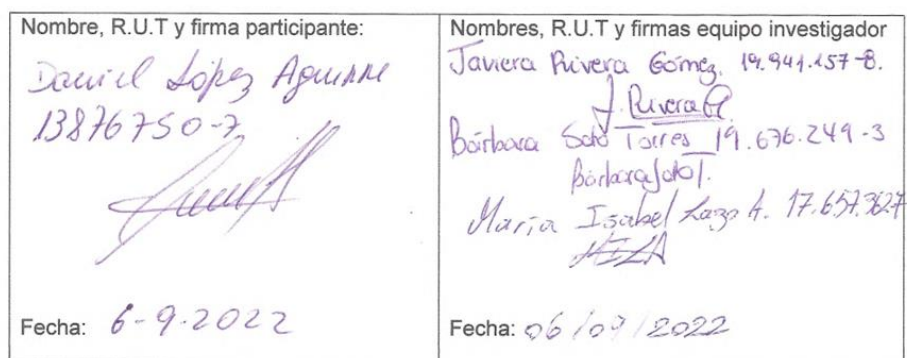 Nombre, R.U.T y firma participante:
Daniel López Aguirre
13876750-7
Fecha: 6-9-2022
Nombres, R.U.T y firmas equipo investigador
Javiera Rivera Gómez. 19.941.157-8.
J. Rivera G
Bárbara Soto Torres 19.676.249-3
BárbaraSotoT.
María Isabel Lazo A. 17.657.362-7
MILA
Fecha: 06/09/2022